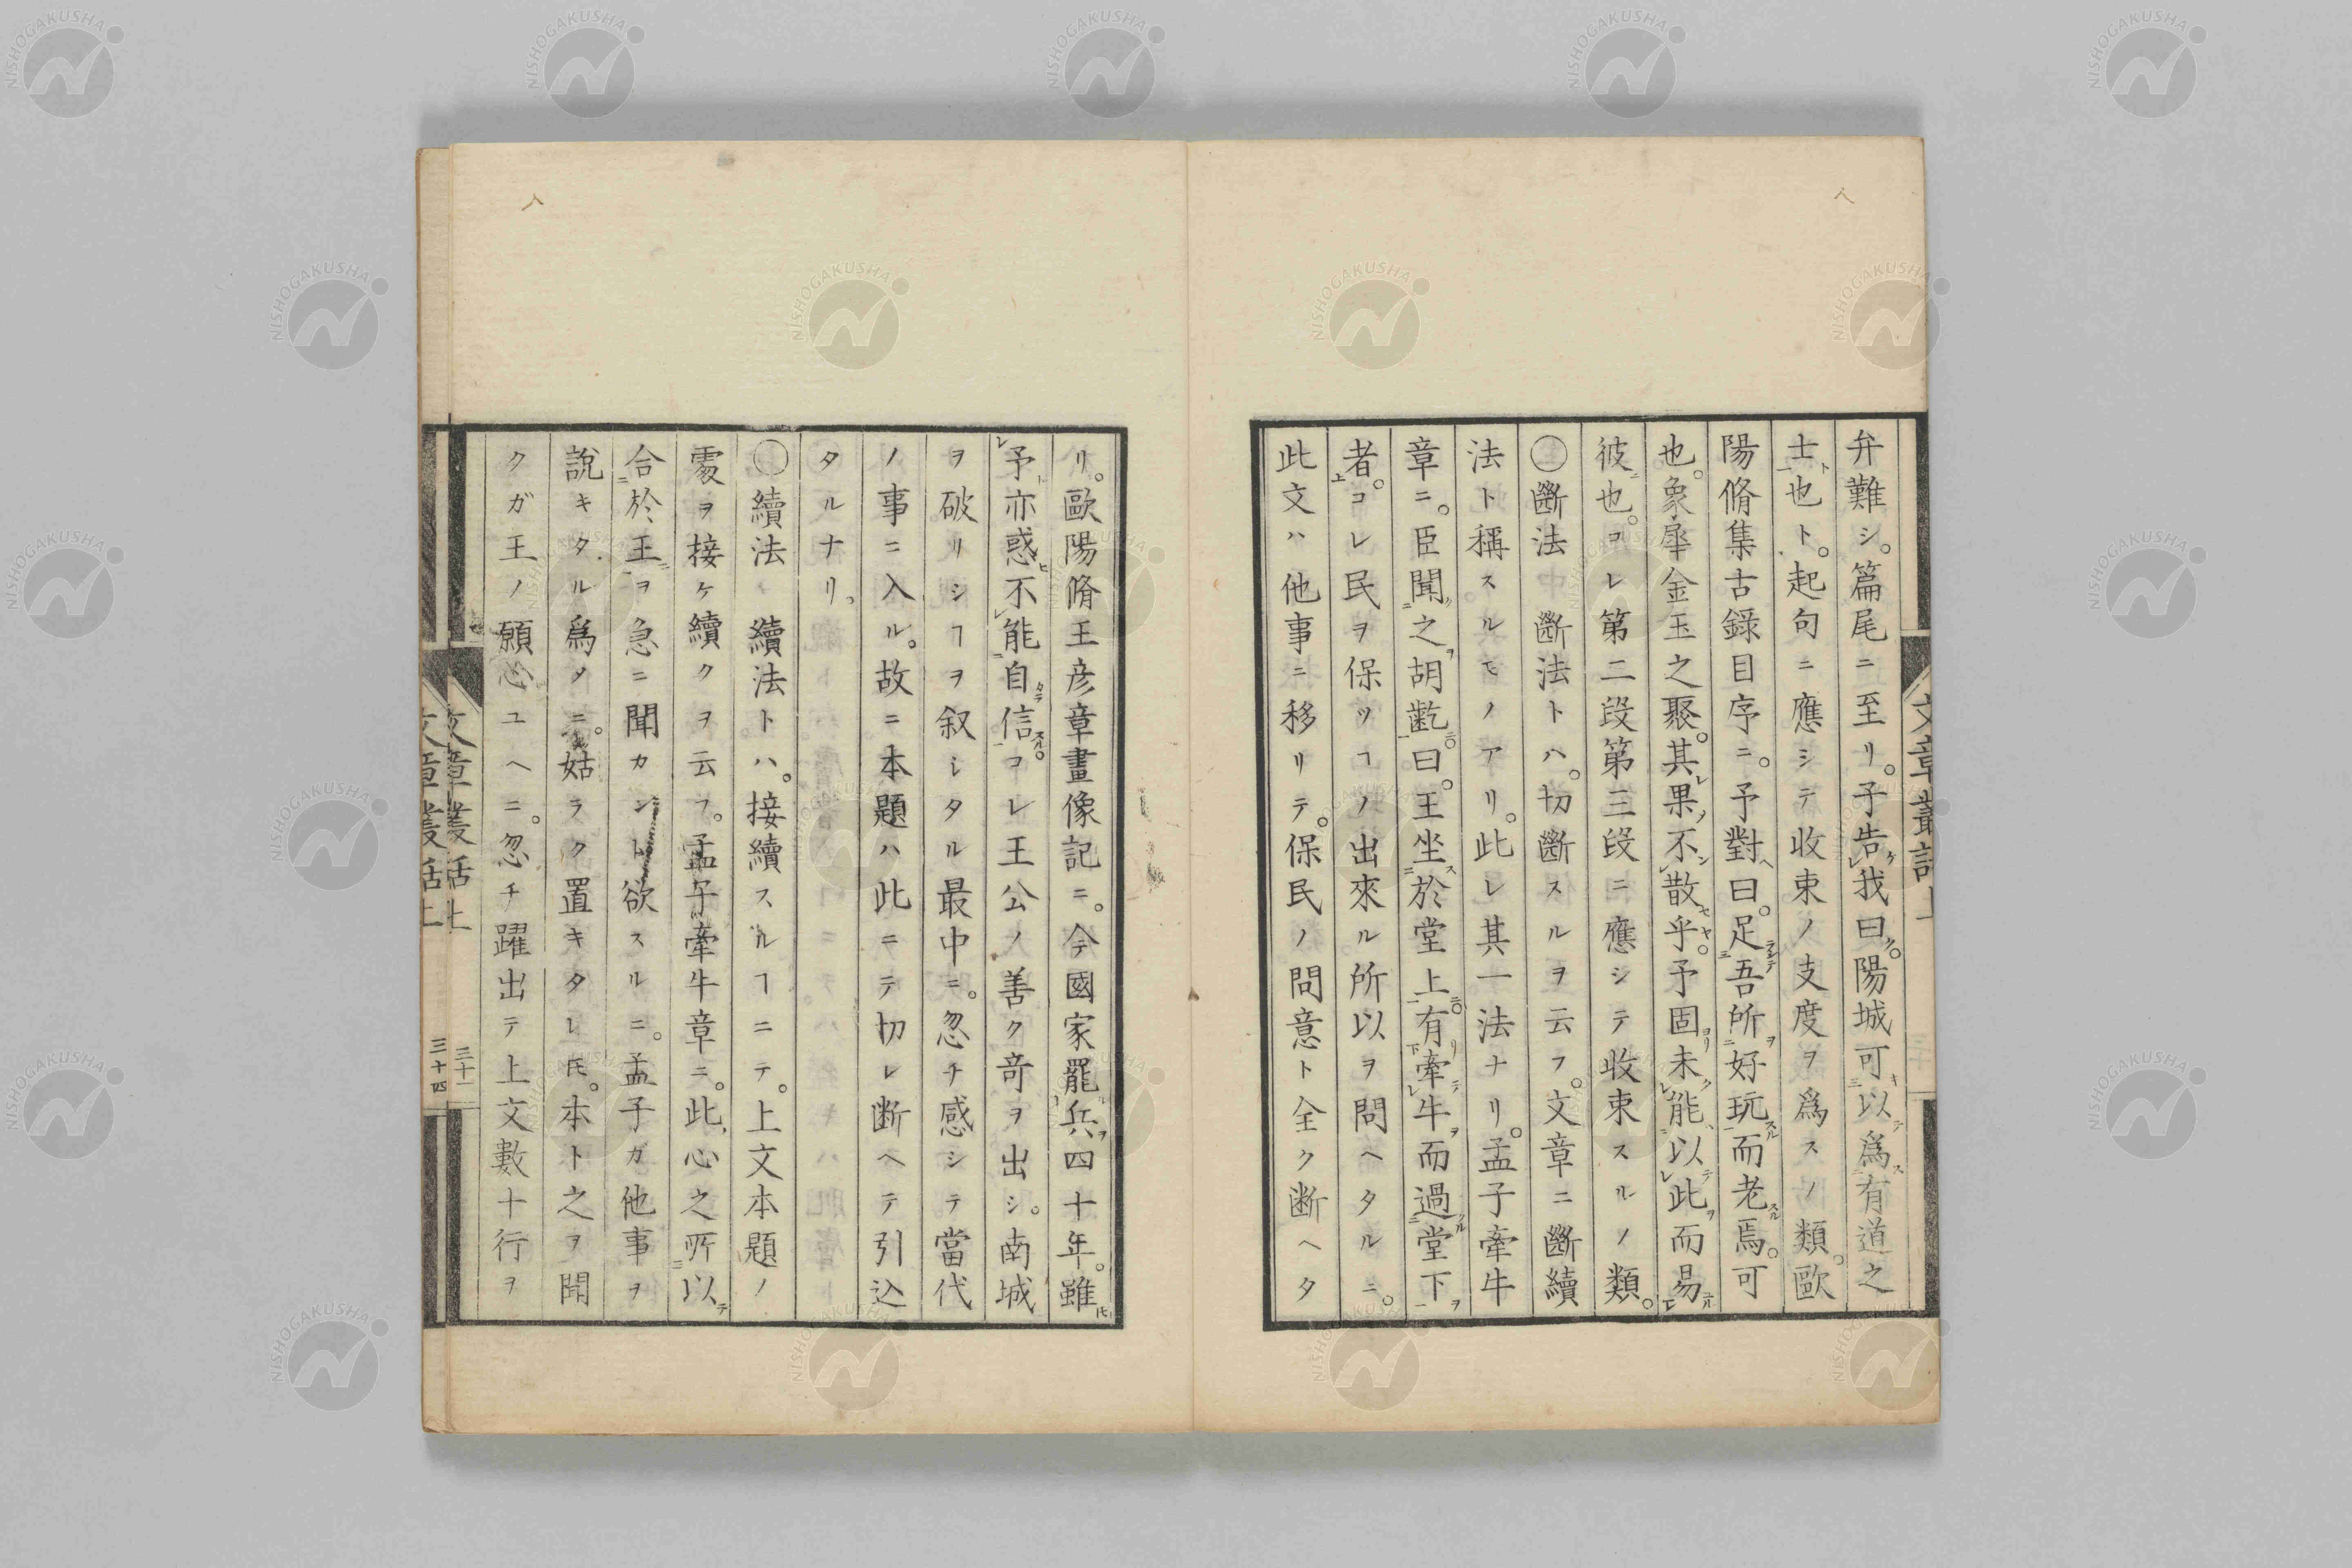 弁難シ。篇尾ニ至リ。子告我曰。陽城可以爲有道之
士也ト。起句ニ應シテ收束ノ支度ヲ爲スノ類。歐
陽脩集古錄目序ニ。予對曰。足吾所好玩而老焉。可
也。象犀金玉之聚。其果不散乎。予固未能以此而易
彼也。コレ第二段第三段ニ應シテ收束スルノ類。
〇斷法 斷法トハ。切斷スルヲ云フ。文章ニ斷續
法ト稱スルモノアリ。此レ其一法ナリ。孟子牽牛
章ニ。臣聞之胡齕曰。王坐於堂上有牽牛而過堂下
者。コレ民ヲ保ツヿノ出來ル所以ヲ問ヘタルニ。
此文ハ他事ニ移リテ。保民ノ問意ト全ク断ヘタ
文章叢話上
リ。歐陽脩王彦章畫像記ニ。今國家罷兵四十年。雖
予亦惑不能自信。コレ王公ノ善ク奇ヲ出シ。南城
ヲ破リシヿヲ叙シタル最中ニ。忽チ感シテ當代
ノ事ニ入ル。故ニ本題ハ此ニテ切レ断ヘテ引込
タルナリ。
〇續法 續法トハ。接續スルヿニテ。上文本題ノ
處ヲ接ケ續クヲ云フ。孟子牽牛章ニ。此心之所以
合於王ヲ急ニ聞カント欲スルニ。孟子ガ他事ヲ
說キタル爲メニ。姑ラク置キタレ𪜈。本ト之ヲ聞
クガ王ノ願心ユヘニ。忽チ躍出テ上文數十行ヲ
文章叢話上 三十一
文章叢話上 三十四
NISHOGAKUSHA